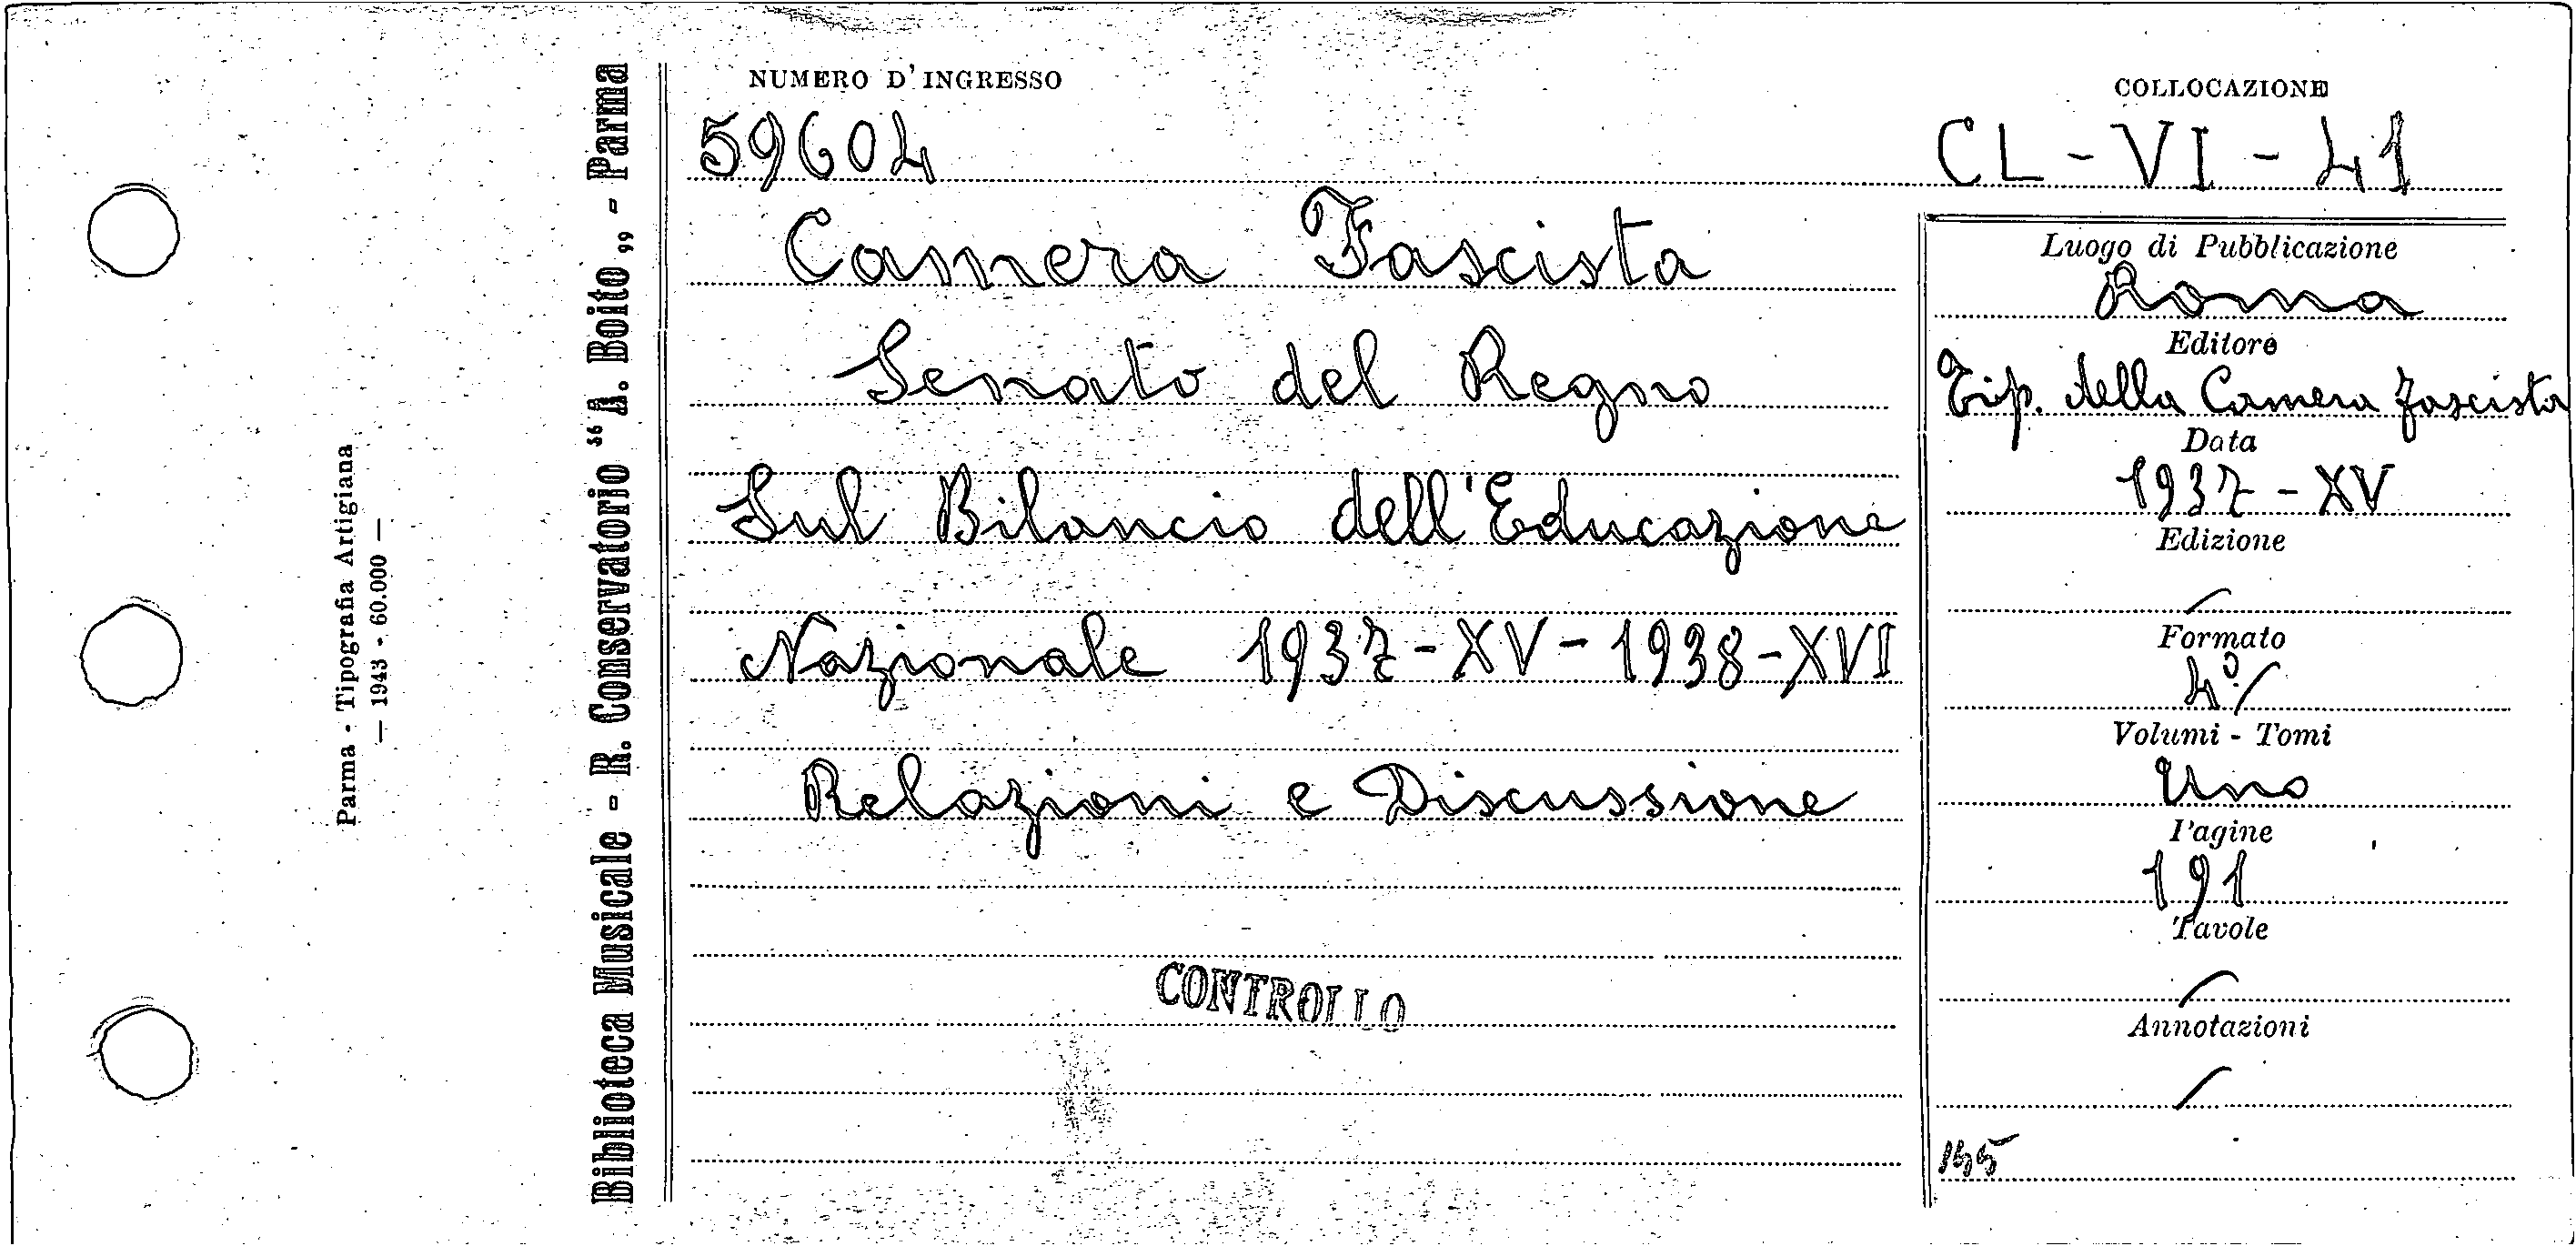 Parma - Tipografia Artigiana
— 1943 - 60.000 —
Biblioteca Musicale - R. Conservatorio “A. Boito„ - Parma
NUMERO D'INGRESSO
59604
COLLOCAZIONE
CL - VI - 41
Camera Fascista
Senato del Regno
Sul Bilancio dell'Educazione
Nazionale 1937-XV-1938-XVI
Relazioni e Discussione
CONTROLLO
Luogo di Pubblicazione
Roma
Editore
Tip. della Camera fascista
Data
1937 - XV
Edizione
Formato
4º
Volumi - Tomi
Uno
Pagine
191
Tavole
Annotazioni